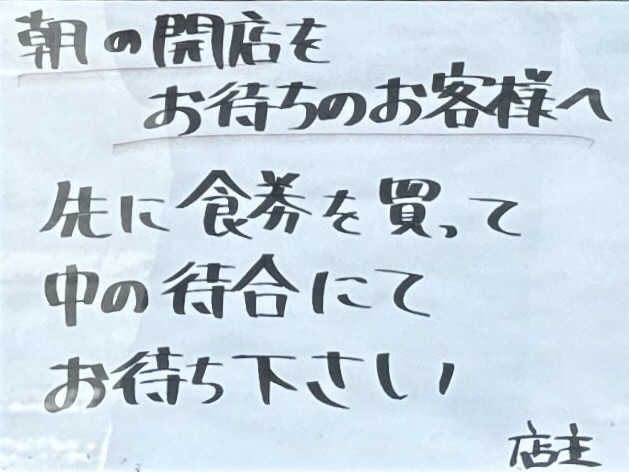 朝の開店を
お待ちのお客様へ
先に食券を買って
中の待合にて
お待ち下さい
店主